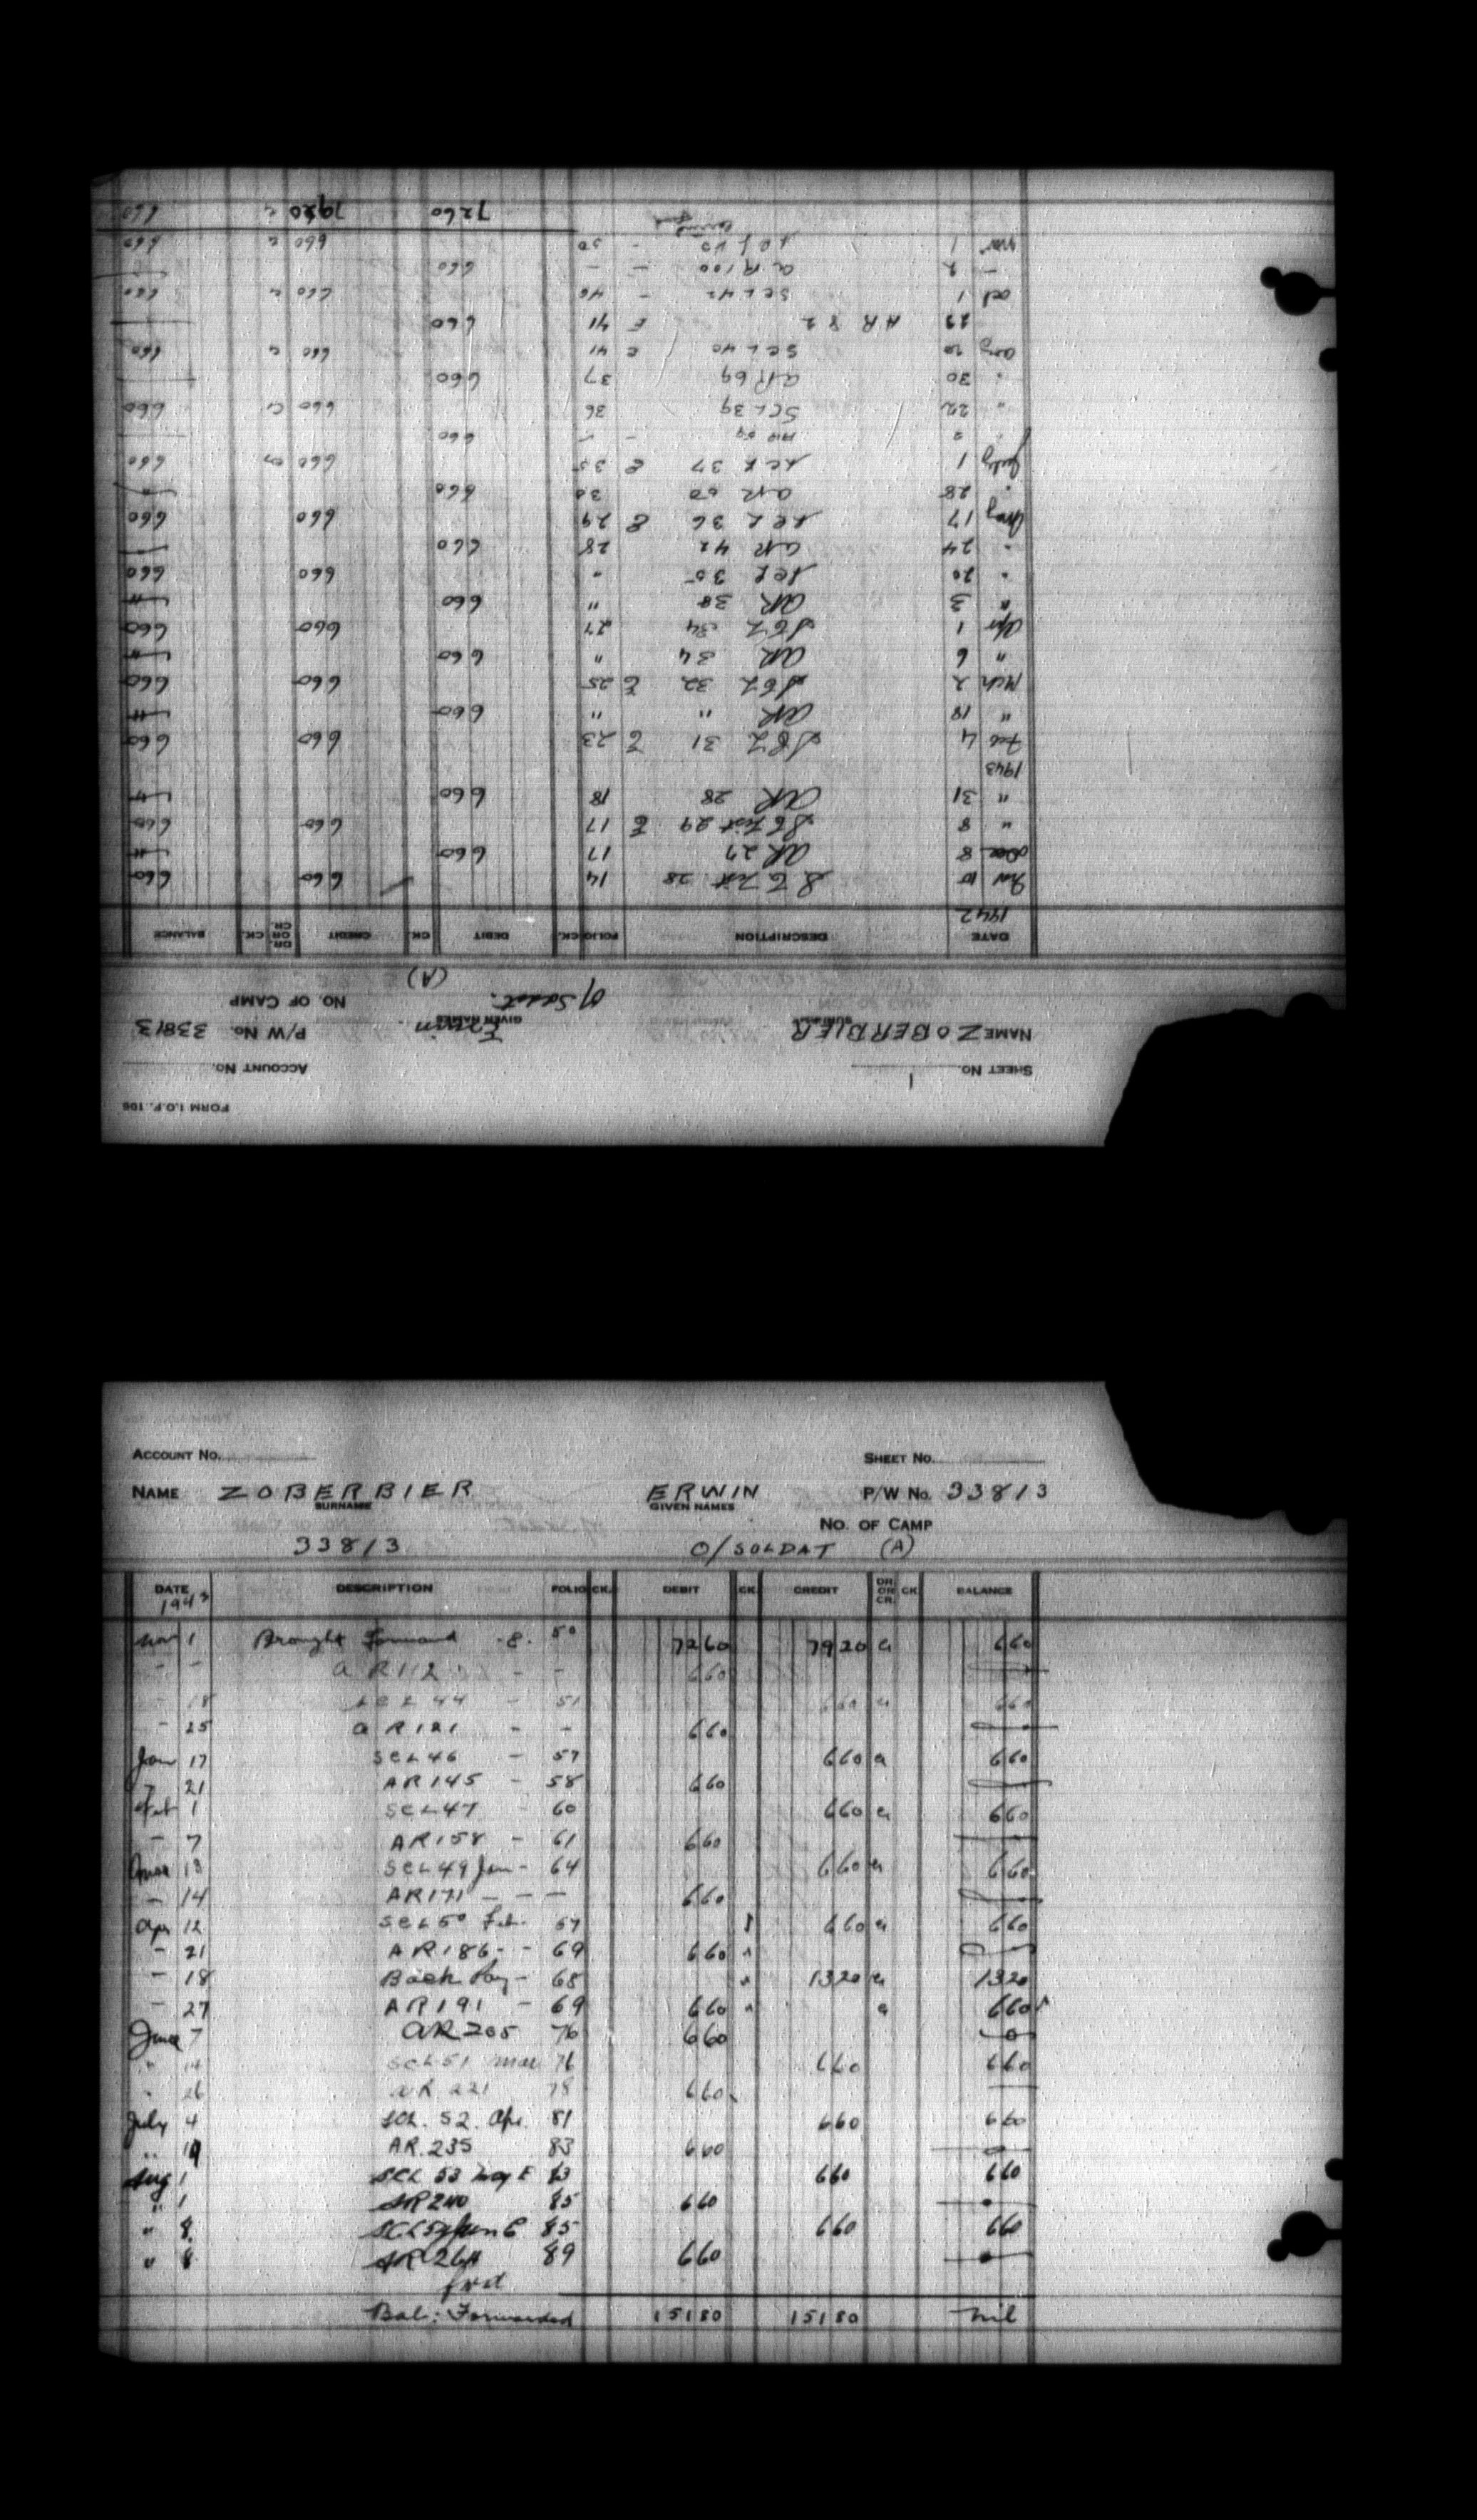 FORM I.O.P. 106
SHEET NO. 1 ACCOUNT NO.
NAME ZOBERBIER SURNAME Erwin GIVEN NAMES P/W No. 33813
O/Sadat. NO. OF CAMP
(A)
DATE DESCRIPTION FOLIO CK. DEBIT CK. CREDIT DR. OR CR. CK. BALANCE
1942
Nov 10 S E List 28 14 660 660
Dec 8 AR 27 17 660
" 8 S E List 29 E 17 660 660
" 31 AR 28 18 660
1943
Feb 4 SEL 31 E 23 660 660
" 18 AR " " 660
Mch 2 SEL 32 E 25 660 660
" 6 AR 34 " 660
Apr 1 SEL 34 27 660 660
" 3 AR 38 " 660
" 20 SCL 35 " 660 660
" 24 AR 42 28 660
May 17 SCL 36 E 29 660 660
" 28 AR 50 30 660
July 1 SCL 37 E 35 660 cr 660
" 2 AR 59 - - 660
" 22 SCL 39 36 660 cr 660
" 30 AR 69 37 660
Aug 20 SCL 40 E 41 660 cr 660
23 AR 82 E 41 660
Oct 1 SCL 42 - 46 660 cr 660
- 2 AR 100 - - 660
Nov 1 - 50 660 cr 660
7260 7920 cr 660
ACCOUNT NO. SHEET NO.
NAME ZOBERBIER SURNAME ERWIN GIVEN NAMES P/W No. 33813
NO. OF CAMP
33813 O/SOLDAT (A)
DATE DESCRIPTION FOLIO CK. DEBIT CK. CREDIT DR. OR CR. CK. BALANCE
1943
Nov 1 Brought Forward E. 50 7260 7920 cr 660
- - AR 112 - - 660
- 18 SCL 44 - 51 660 cr 660
- 25 AR 121 - - 660
Jan 17 SCL 46 - 57 660 cr 660
" 21 AR 145 - 58 660
Feb 1 SCL 47 - 60 660 cr 660
- 7 AR 158 - 61 660
Mar 13 SCL 49 Jan - 64 660 cr 660
- 14 AR 171 - - - 660
Apr 12 SCL 50 Feb. 67 660 cr 660
- 21 AR 186 - - 69 660
- 18 Back Pay - 68 1320 cr 1320
- 27 AR 191 - 69 660 cr 660
June 7 AR 205 76 660 0
" 14 SCL 51 Mar 76 660 660
" 26 AR 221 78 660
July 4 SCL. 52. Apr. 81 660 660
" 19 AR. 235 83 660
Aug 1 SCL 53 May E 83 660 660
" 1 AR 240 85 660
" 8. SCL 54 Jun E 85 660 660
" 8 AR 264 89 660
fwd
Bal: Forwarded 15180 15180 nil